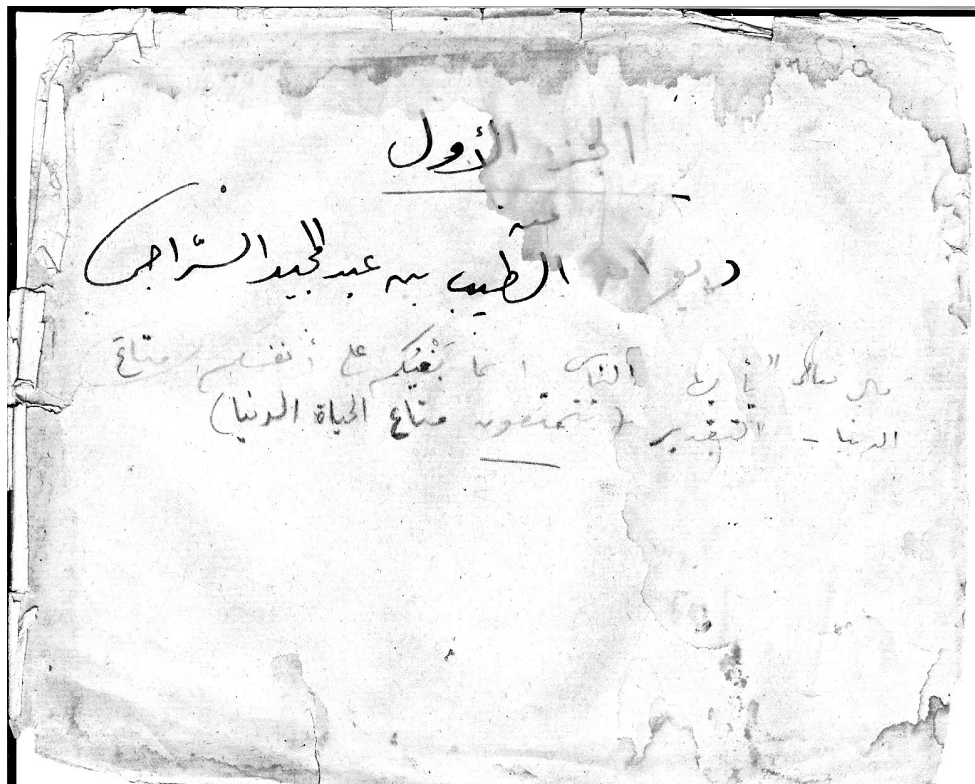 الجزء الأول
من
ديوان الطيب بن عبد المجيد السّراج
قال تعالى "يا أيها الناس انما بَغْيُكم على أنفسكم متاعَ
الدنيا - التقدير (تتمتعون متاع الحياة الدنيا)